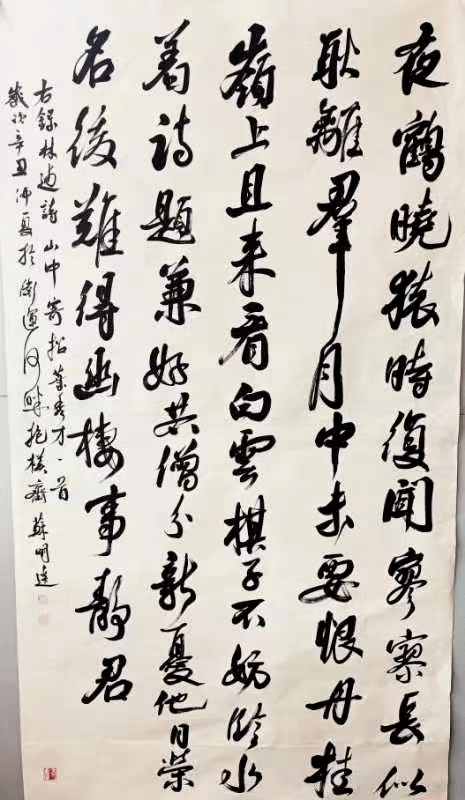 夜鹤晓猿時復闻寥寥長似
耿離羣月中未要恨丹桂
嶺上且来看白雲棋子不妨临水
着詩題兼好共僧分新憂他日荣
名後難得幽棲事静君
右録林逋詩山中寄招葉秀才一首
歲次辛丑仲夏於衛運河畔抱樸齋蘇明廷